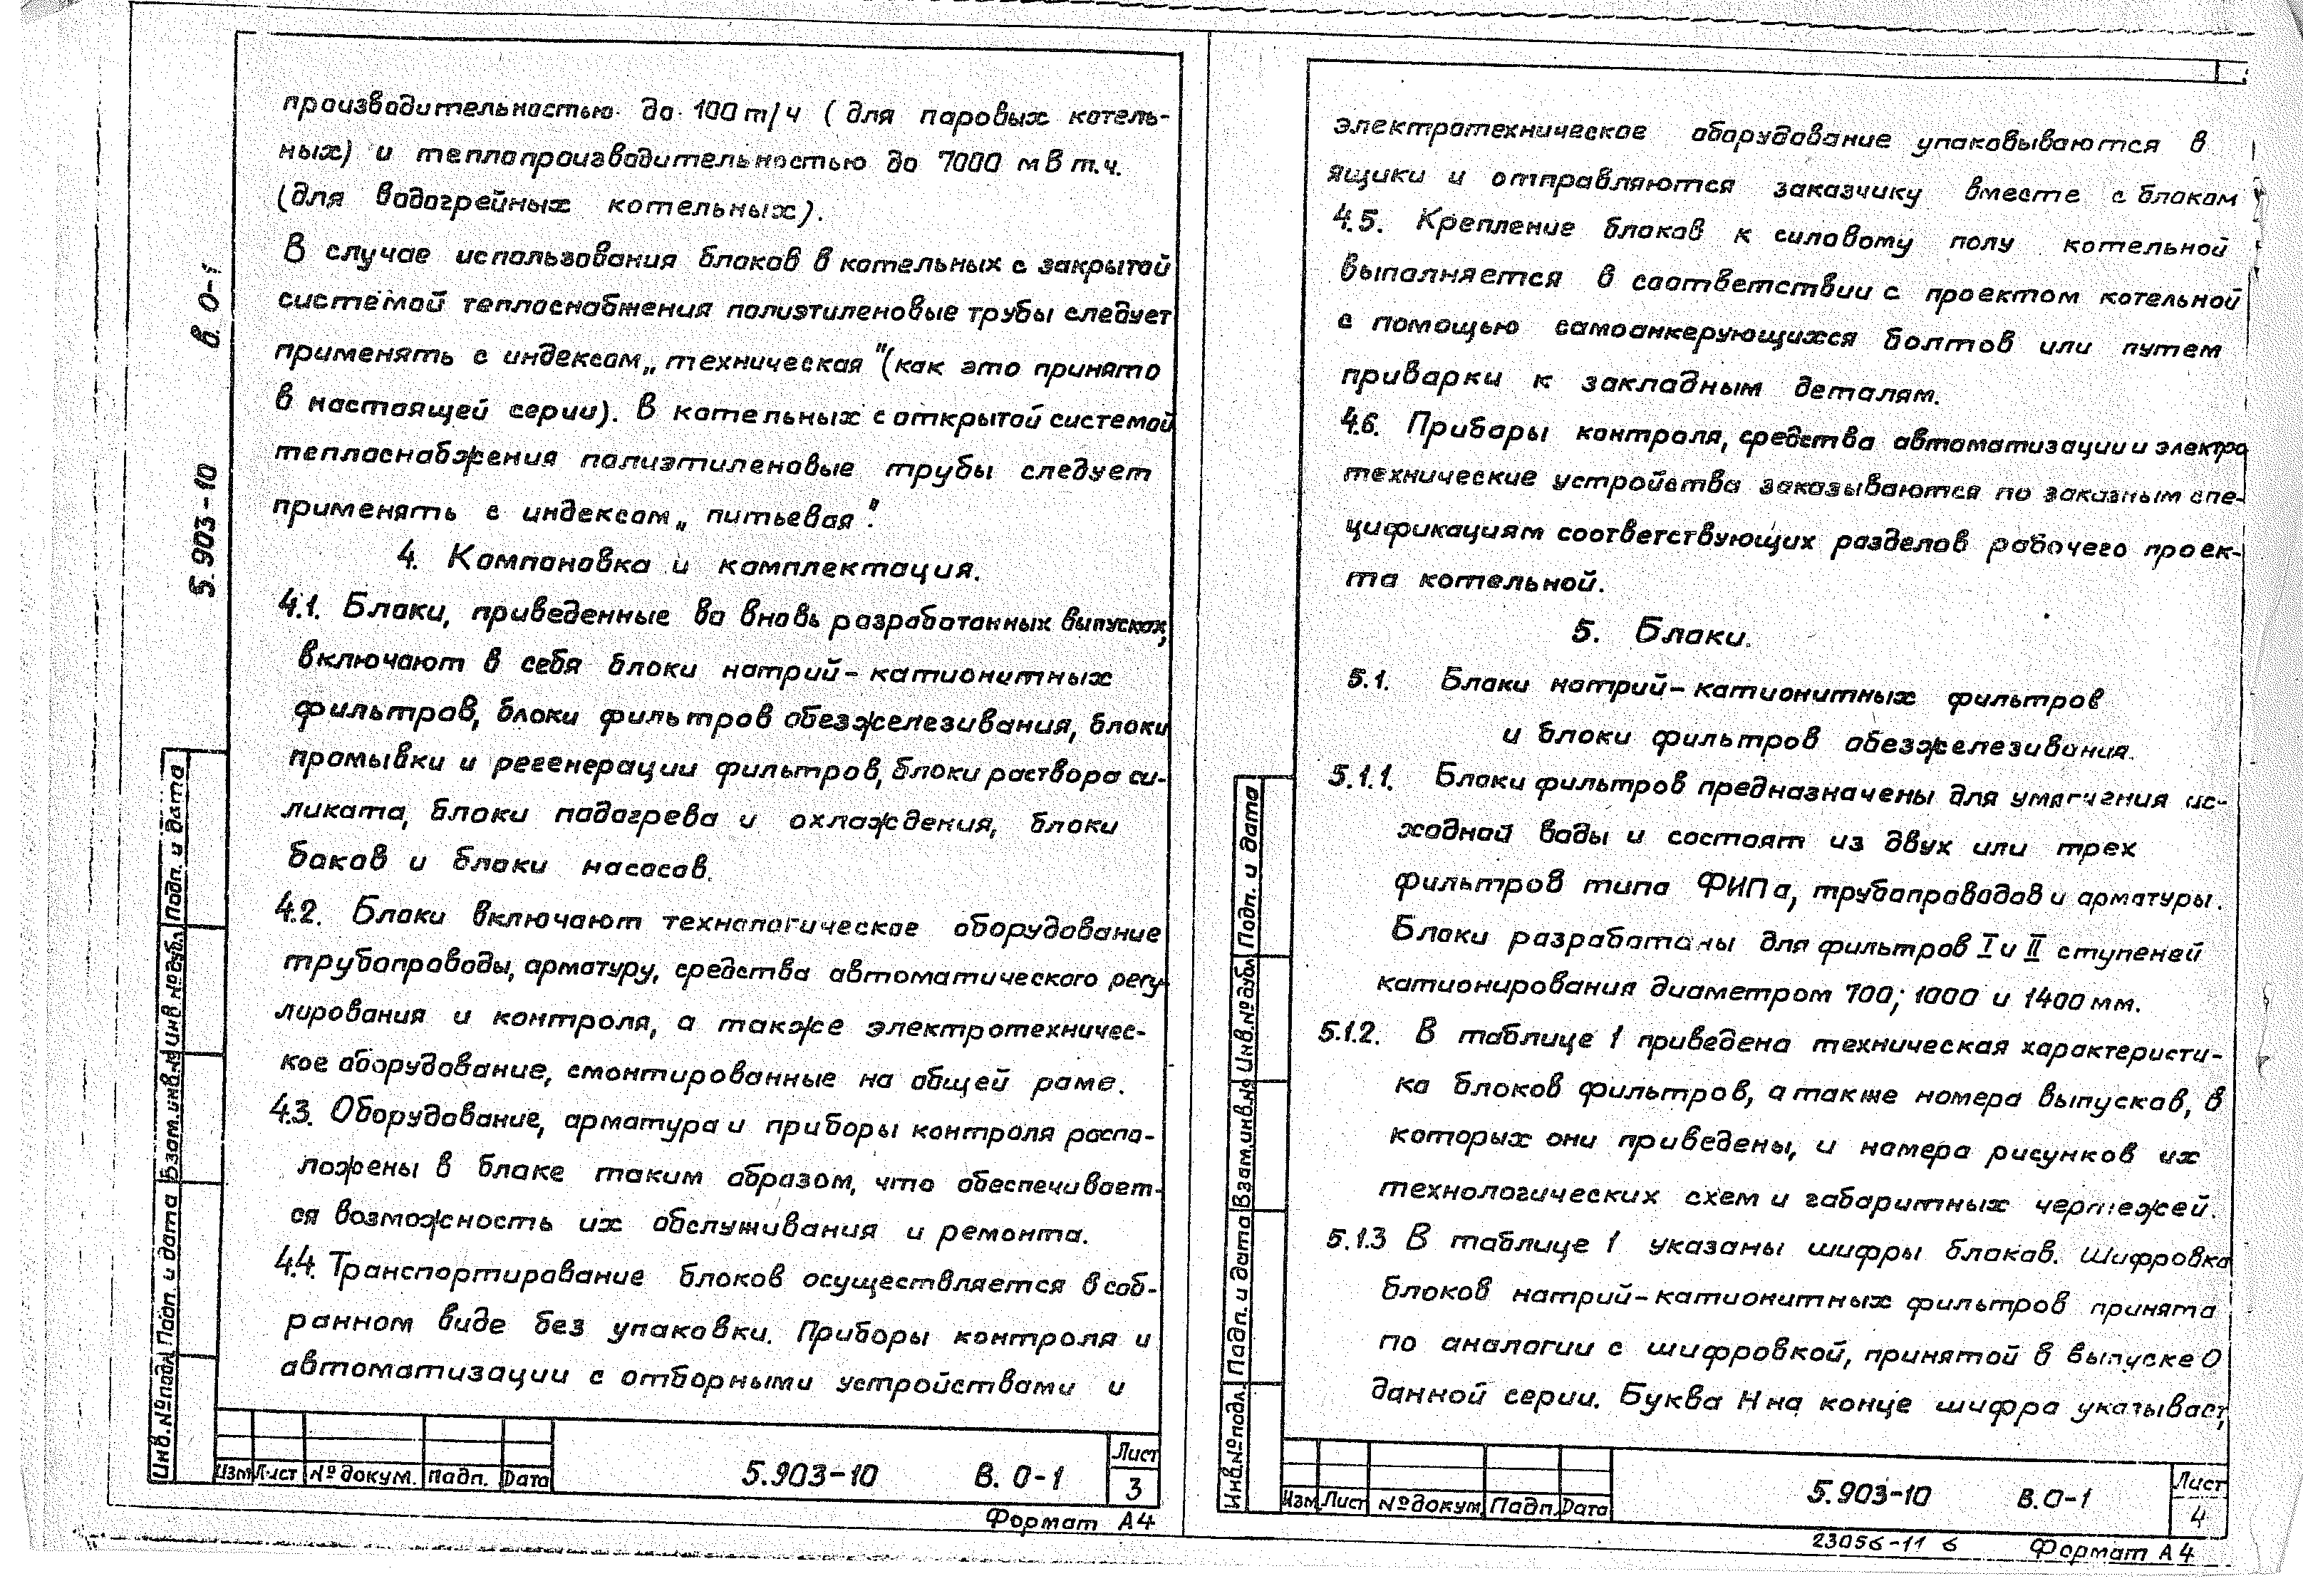 производительностью до 100 т/ч (для паровых котель-
ных) и теплопроизводительностью до 7000 мВт.ч.
(для водогрейных котельных).
В случае использования блоков в котельных с закрытой
системой теплоснабжения полиэтиленовые трубы следует
применять с индексом „техническая" (как это принято
в настоящей серии). В котельных с открытой системой
теплоснабжения полиэтиленовые трубы следует
применять с индексом „питьевая".
4. Компоновка и комплектация.
4.1. Блоки, приведенные во вновь разработанных выпусках,
включают в себя блоки натрий-катионитных
фильтров, блоки фильтров обезжелезивания, блоки
промывки и регенерации фильтров, блоки раствора си-
ликата, блоки подогрева и охлаждения, блоки
баков и блоки насосов.
4.2. Блоки включают технологическое оборудование
трубопроводы, арматуру, средства автоматического регу-
лирования и контроля, а также электротехничес-
кое оборудование, смонтированные на общей раме.
4.3. Оборудование, арматура и приборы контроля распо-
ложены в блоке таким образом, что обеспечивает-
ся возможность их обслуживания и ремонта.
4.4. Транспортирование блоков осуществляется в соб-
ранном виде без упаковки. Приборы контроля и
автоматизации с отборными устройствами и
5.903-10 в. 0-1
Инв.№подл. Подп. и дата Взам.инв.№ Инв.№дубл. Подп. и дата
Изм Лист №докум. Подп. Дата
5.903-10 В. 0-1
Лист
3
Формат А4
электротехническое оборудование упаковываются в
ящики и отправляются заказчику вместе с блоком
4.5. Крепление блоков к силовому полу котельной
выполняется в соответствии с проектом котельной
с помощью самоанкерующихся болтов или путем
приварки к закладным деталям.
4.6. Приборы контроля, средства автоматизации и электро
технические устройства заказываются по заказным спе-
цификациям соответствующих разделов рабочего проек-
та котельной.
5. Блоки.
5.1. Блоки натрий-катионитных фильтров
и блоки фильтров обезжелезивания.
5.1.1. Блоки фильтров предназначены для умягчения ис-
ходной воды и состоят из двух или трех
фильтров типа ФИПа, трубопроводов и арматуры.
Блоки разработаны для фильтров I и II ступеней
катионирования диаметром 700; 1000 и 1400 мм.
5.1.2. В таблице 1 приведена техническая характеристи-
ка блоков фильтров, а также номера выпусков, в
которых они приведены, и номера рисунков их
технологических схем и габаритных чертежей.
5.1.3 В таблице 1 указаны шифры блоков. Шифровка
блоков натрий-катионитных фильтров принята
по аналогии с шифровкой, принятой в выпуске 0
данной серии. Буква Н на конце шифра указывает,
Инв.№подл. Подп. и дата Взам.инв.№ Инв.№дубл Подп. и дата
Изм Лист №докум. Подп. Дата
5.903-10 В.0-1
Лист
4
23056-11 6 Формат А4